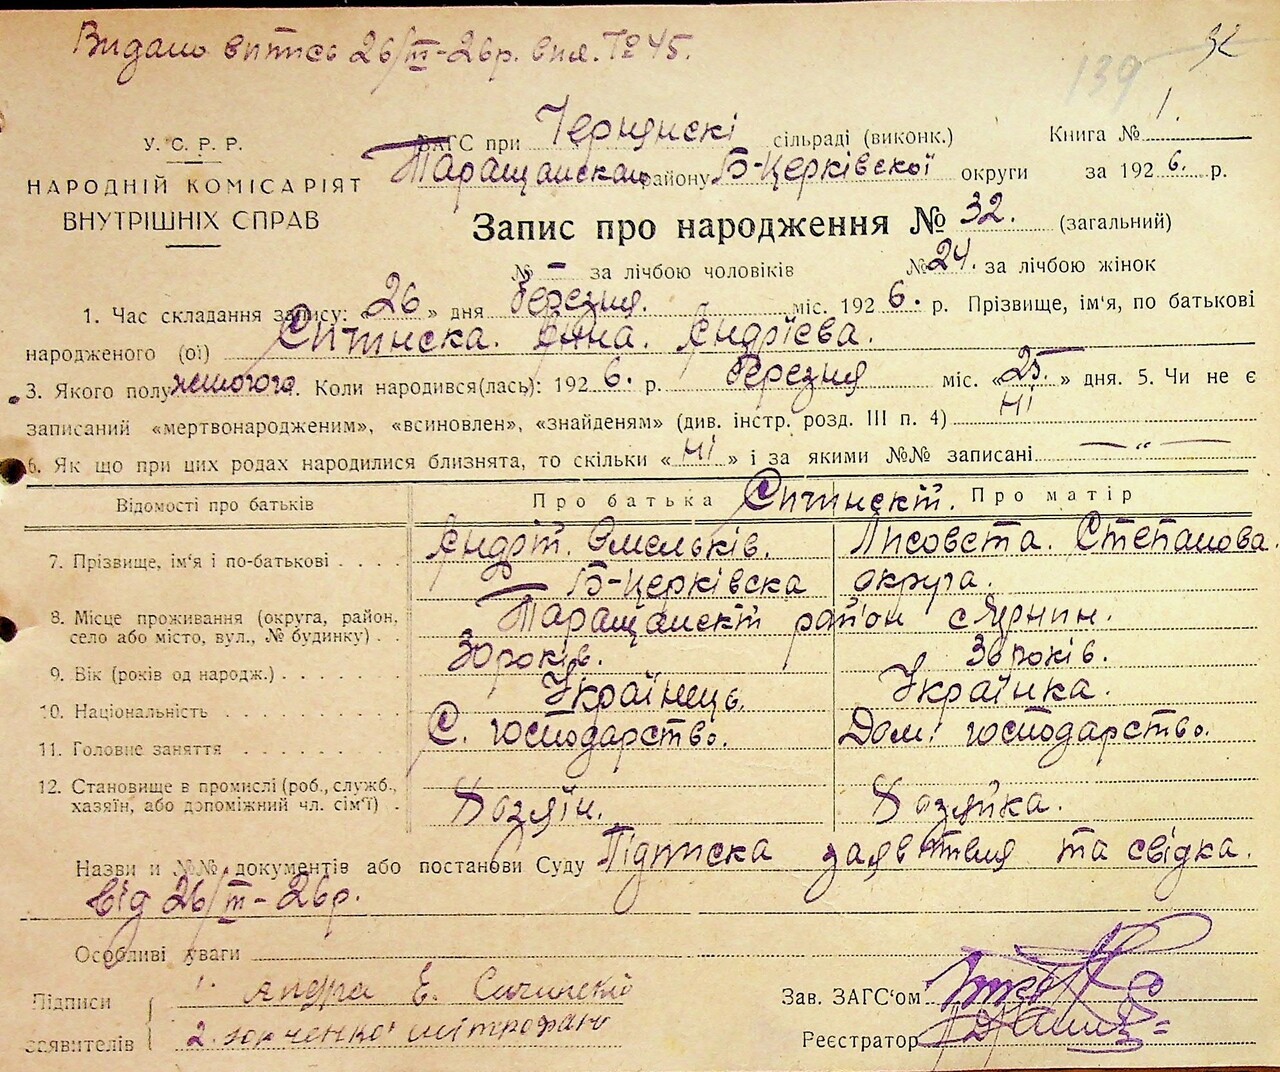 Видано витяг 26/III-26р. вил. № 45.
32
139
У.С.Р.Р.
НАРОДНІЙ КОМІСАРІЯТ
ВНУТРІШНІХ СПРАВ
ЗАГС при сільраді (виконк.) Книга № 1.
Таращанськ району Б-Церківської округи за 1926. р.
Запис про народження № 32. (загальний)
№ – за лічбою чоловіків №24. за лічбою жінок
1. Час складання запису: «26» дня березня. міс. 1926. р. Прізвище, ім'я, по батькові
народженого (ої) Ситнска. Анна. Андрієва.
3. Якого полу жіногого. Коли народився(лась): 1926. р. березня міс. «25.» дня. 5. Чи не є
записаний «мертвонародженим», «всиновлен», «знайденям» (див. інстр. розд. III п. 4) ні
6. Як що при цих родах народилися близнята, то скільки «ні» і за якими №№ записані — „ —
Відомості про батьків Про батька Про матір
7. Прізвище, ім'я і по-батькові Андріт. Омельків. Лисовета. Степанова.
Б-Церківска округа.
8. Місце проживання (округа, район,
село або місто, вул., № будинку) Таращанскт район с.
9. Вік (років од народж.) 30 років. 30 років.
10. Національність Українець. Українка.
11. Головне заняття С. господарство. Дом. господарство.
12. Становище в промислі (роб., служб.,
хазяїн, або допоміжний чл. сім'ї) Хозяїн. Хозяйка.
Назви и №№ документів або постанови Суду Підписка заявителя та свідка.
від 26/III-26р.
Особливі уваги
Підписи
заявителів
1. Андра Е.
2. Юрченко Митрофан
Зав. ЗАГС'ом
Реєстратор